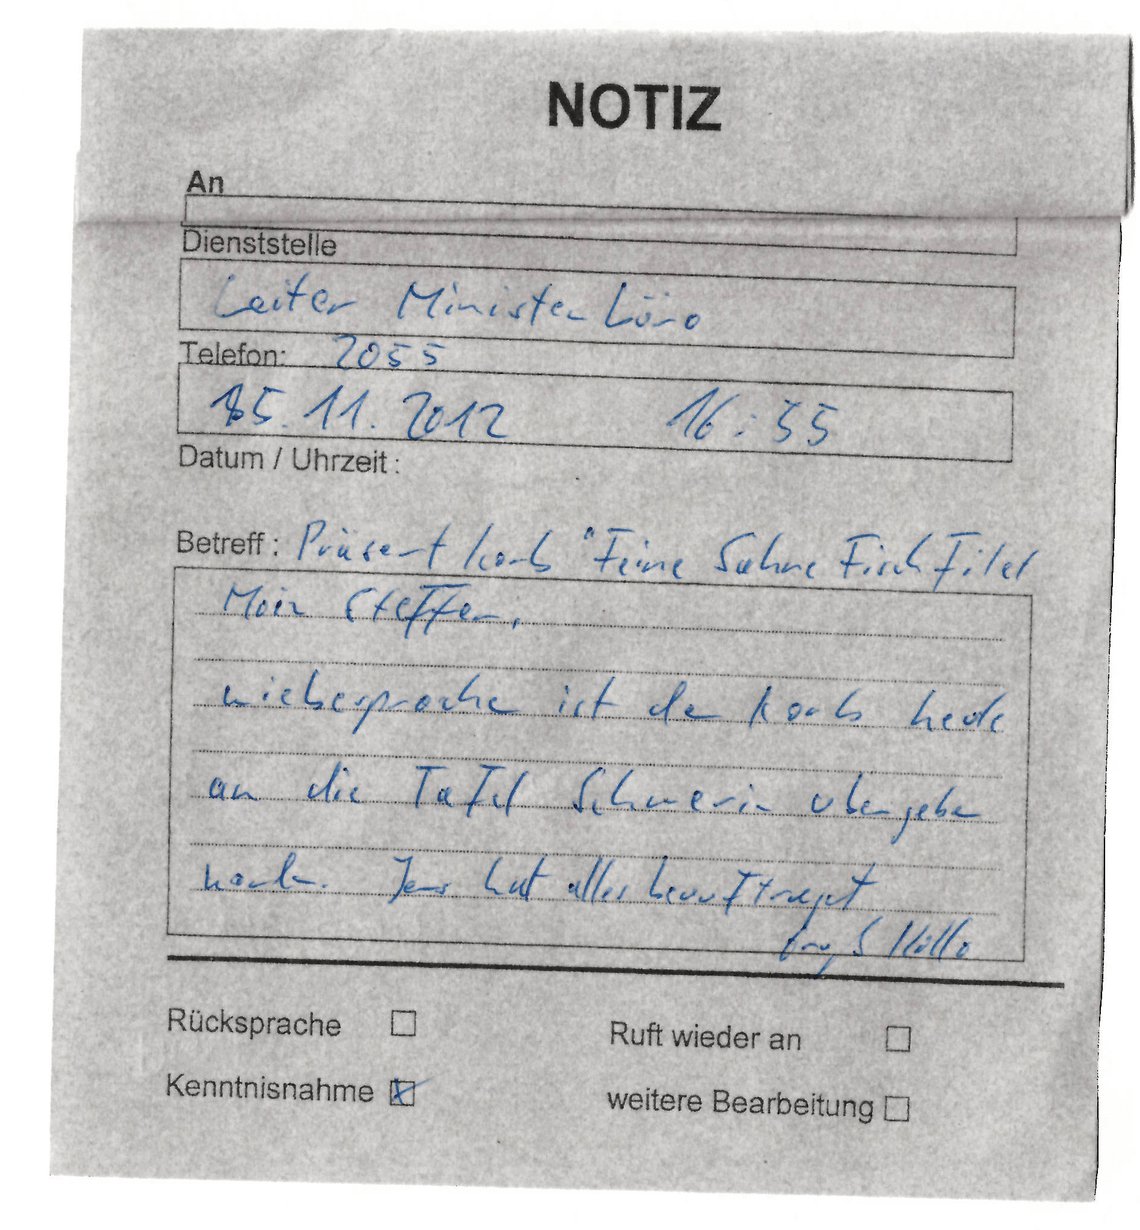 NOTIZ
An
Dienststelle
Leiter Ministerbüro
Telefon: 2055
15.11.2012 16:55
Datum / Uhrzeit :
Betreff : Präsentkorb "Feine Sahne Fischfilet
Moin Steffen,
wiebesprochen ist der Korb heute
an die Tafel Schwerin übergeben
worden. Jens hat alles beauftragt
Gruß
Rücksprache ☐ Ruft wieder an ☐
Kenntnisnahme ☒ weitere Bearbeitung ☐